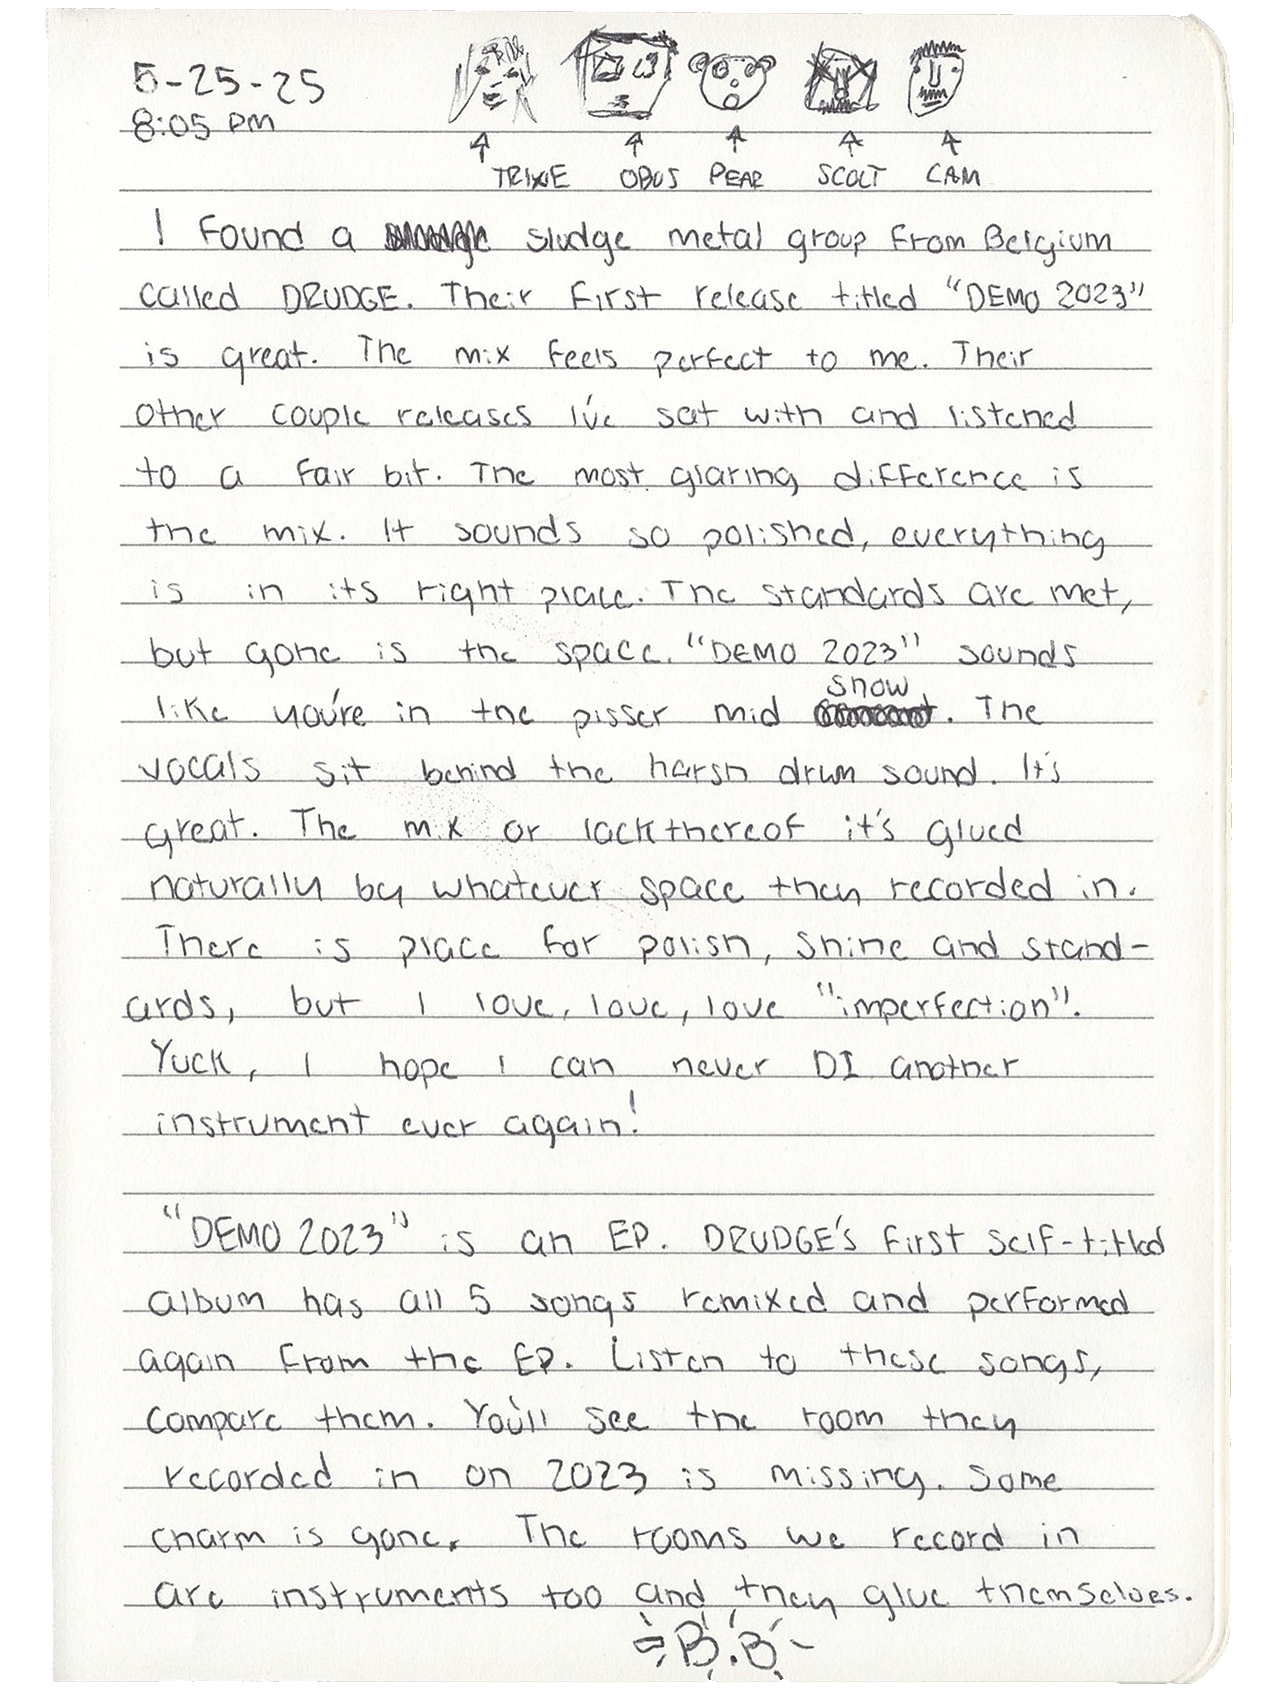 5-25-25
8:05 PM
TRIXIE OBUS PEAR SCOLT CAM
I Found a sludge metal group From Belgium
called DRUDGE. Their First release titled "DEMO 2023"
is great. The mix feels perfect to me. Their
other couple releases I've sat with and listened
to a fair bit. The most glaring difference is
the mix. It sounds so polished, everything
is in its right place. The standards are met,
but gone is the space. "DEMO 2023" sounds
like you're in the pisser mid snow. The
vocals sit behind the harsh drum sound. It's
great. The mix or lack thereof it's glued
naturally by whatever space they recorded in.
There is place for polish, shine and stand-
ards, but I love, love, love "imperfection".
Yuck, I hope I can never DI another
instrument ever again!
"DEMO 2023" is an EP. DRUDGE'S First self-titled
album has all 5 songs remixed and performed
again From the EP. Listen to these songs,
compare them. You'll see the room they
recorded in on 2023 is missing. Some
charm is gone. The rooms we record in
are instruments too and they glue themselves.
B.B